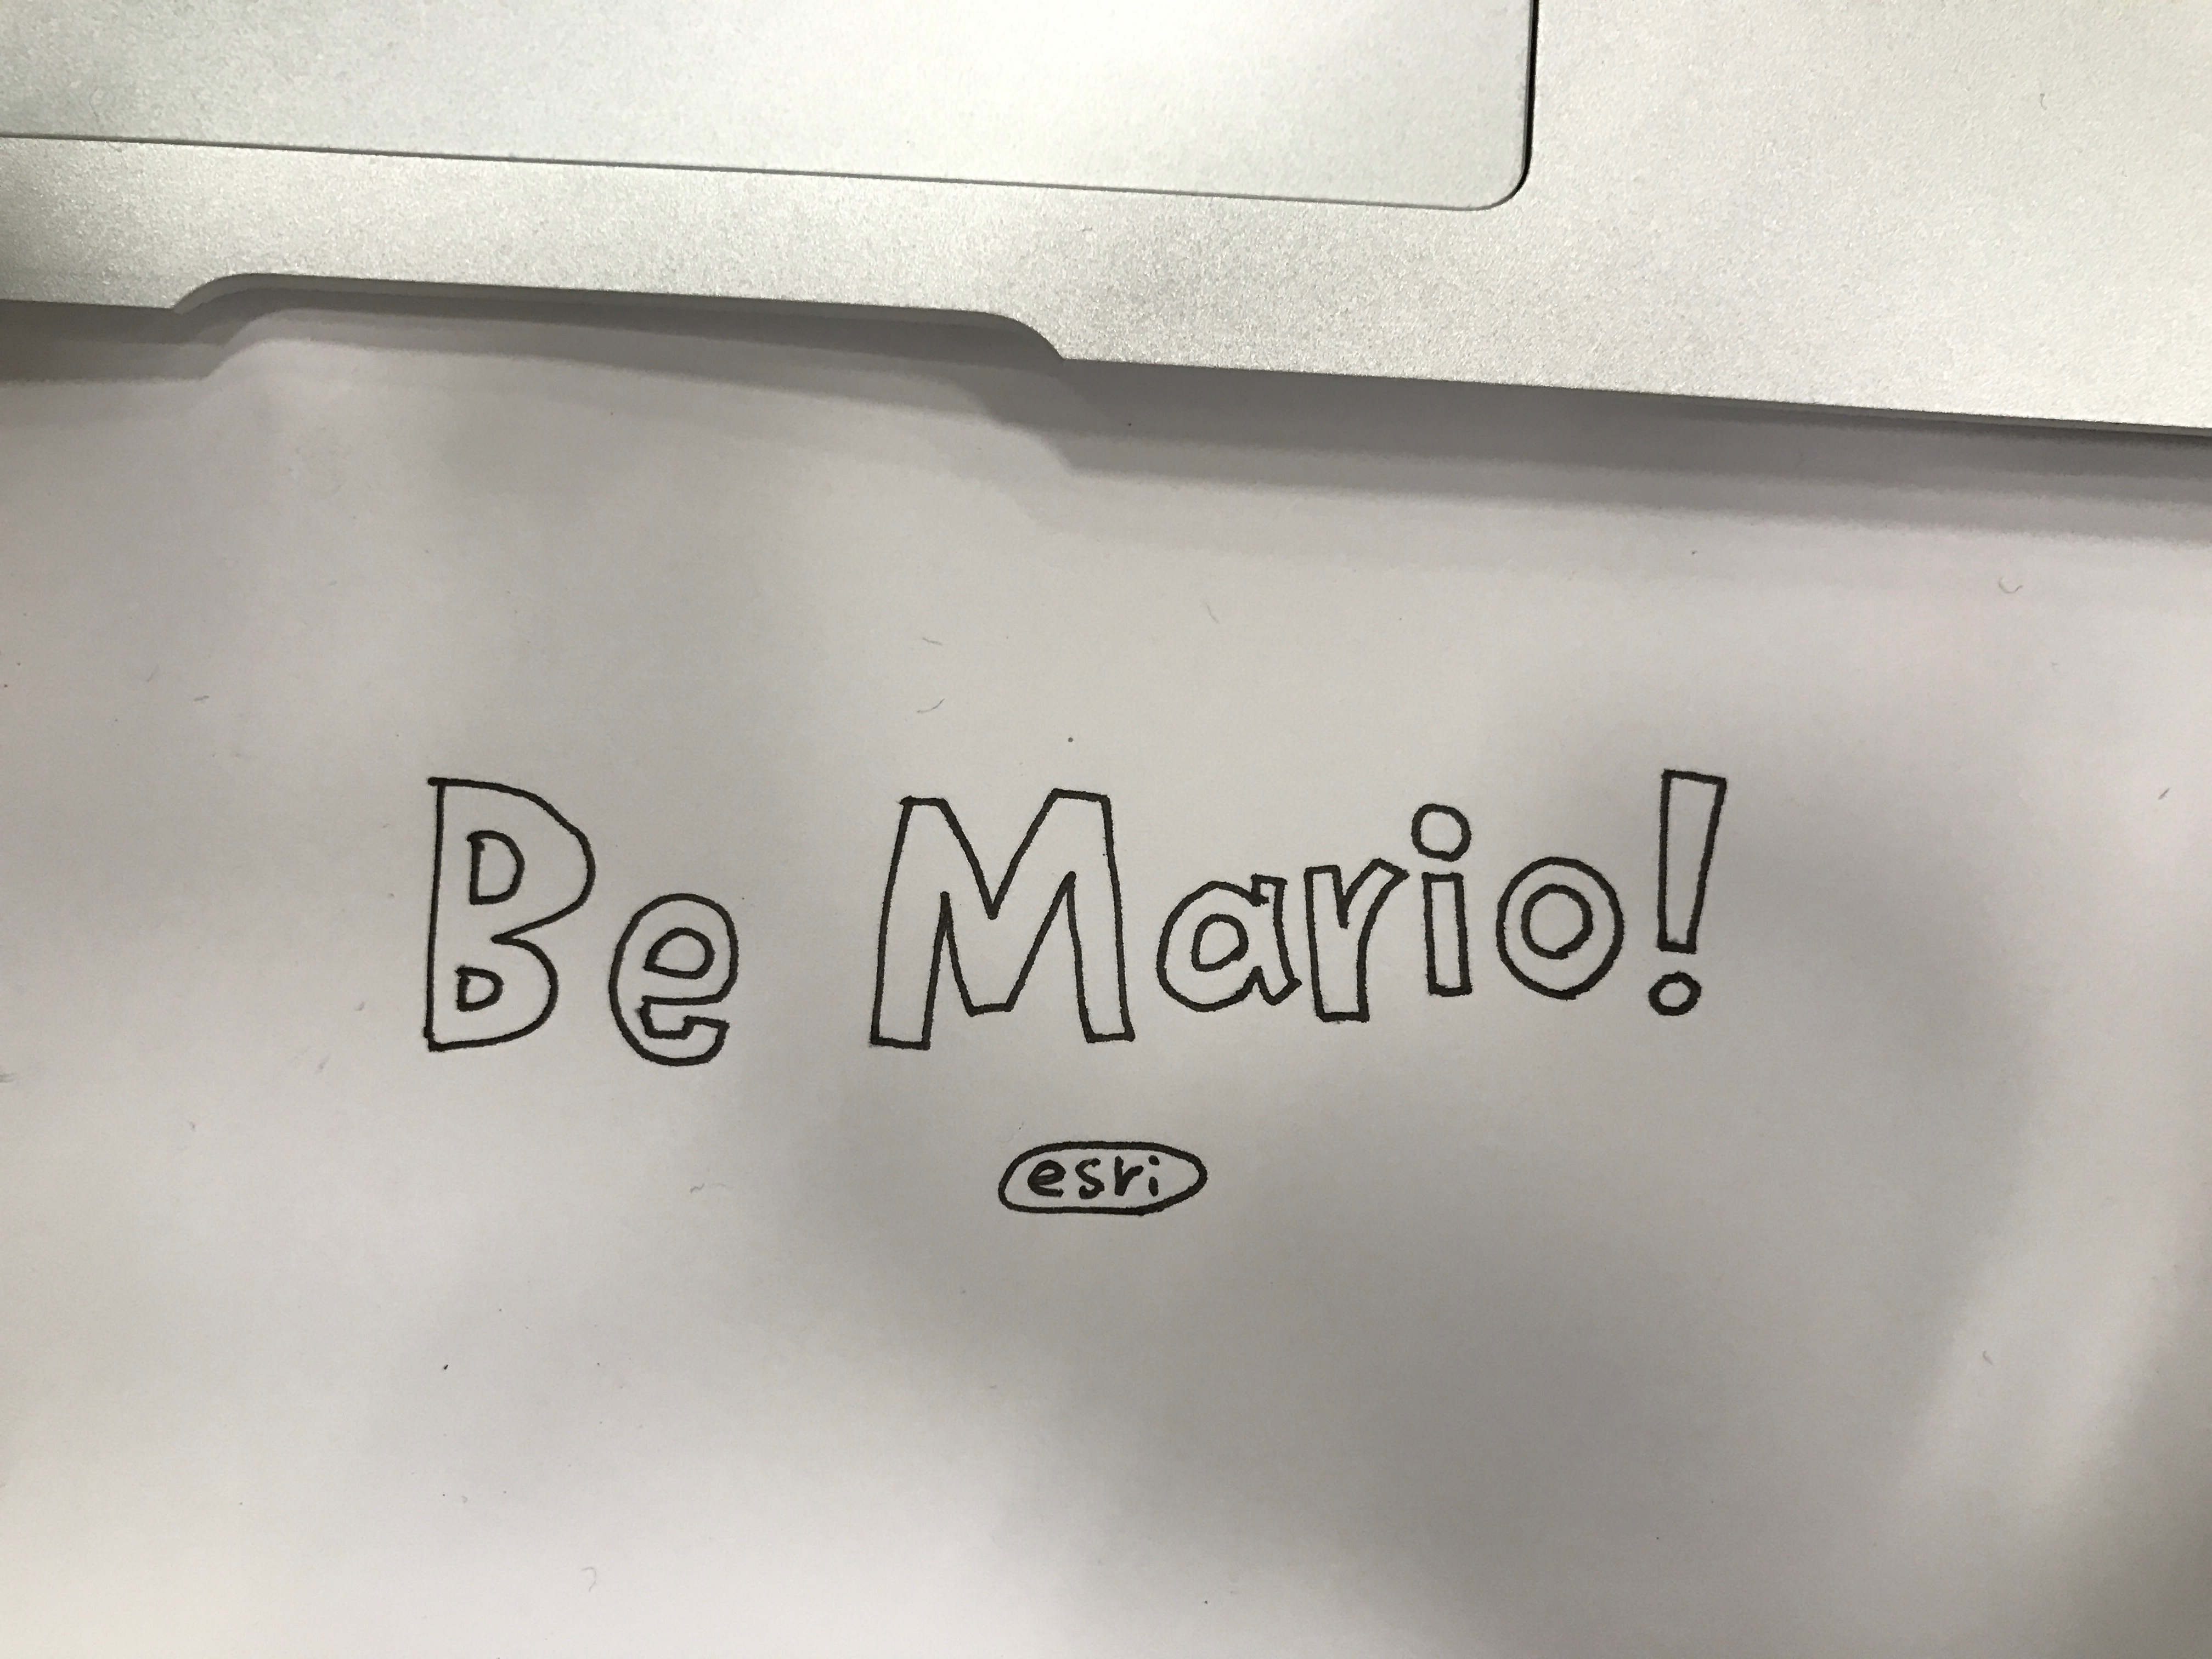 Be Mario!
esri